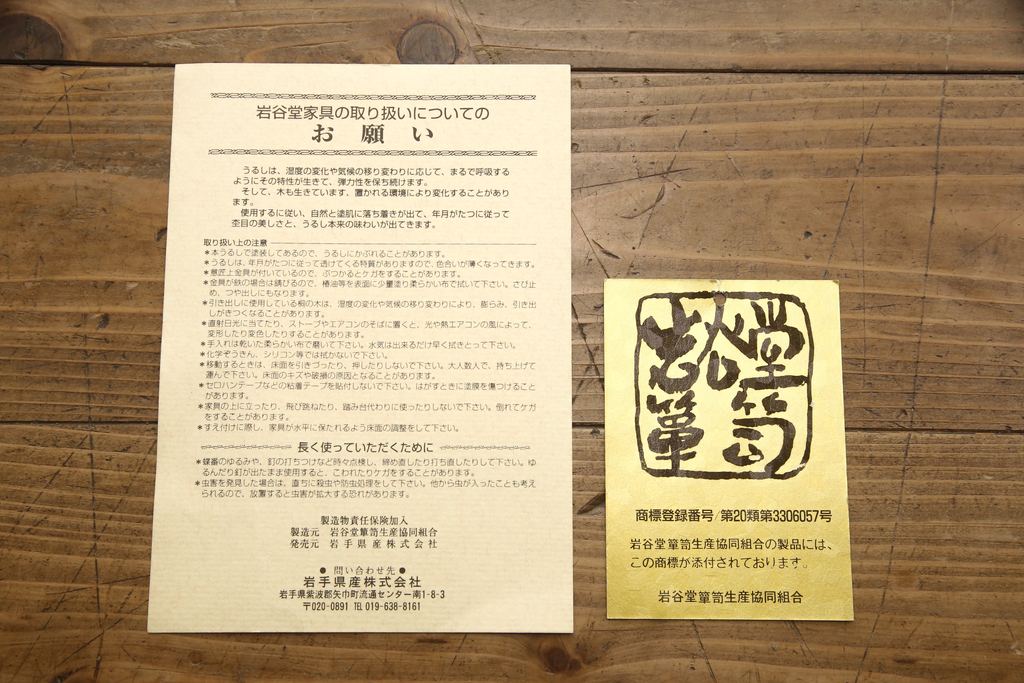 岩谷堂家具の取り扱いについての
お願い
うるしは、湿度の変化や気候の移り変わりに応じて、まるで呼吸する
ようにその特性が生きて、弾力性を保ち続けます。
そして、木も生きています。置かれる環境により変化することがあり
ます。
使用するに従い、自然と塗肌に落ち着きが出て、年月がたつに従って
杢目の美しさと、うるし本来の味わいが出てきます。
取り扱い上の注意
＊本うるしで塗装してあるので、うるしにかぶれることがあります。
＊うるしは、年月がたつに従って透けてくる特質がありますので、色合いが薄くなってきます。
＊意匠上金具が付いているので、ぶつかるとケガをすることがあります。
＊金具が鉄の場合は錆びるので、椿油等を表面に少量塗り柔らかい布で拭いて下さい。さび止
め、つや出しにもなります。
＊引き出しに使用している桐の木は、湿度の変化や気候の移り変わりにより、膨らみ、引き出
しがきつくなることがあります。
＊直射日光に当てたり、ストーブやエアコンのそばに置くと、光や熱エアコンの風によって、
変形したり変色したりすることがあります。
＊手入れは乾いた柔らかい布で磨いて下さい。水気は出来るだけ早く拭きとって下さい。
＊化学ぞうきん、シリコン等では拭かないで下さい。
＊移動するときは、床面を引きづったり、押したりしないで下さい。大人数人で、持ち上げて
運んで下さい。床面のキズや破損の原因となることがあります。
＊セロハンテープなどの粘着テープを貼付しないで下さい。はがすときに塗膜を傷つけること
があります。
＊家具の上に立ったり、飛び跳ねたり、踏み台代わりに使ったりしないで下さい。倒れてケガ
をすることがあります。
＊すえ付けに際し、家具が水平に保たれるよう床面の調整をして下さい。
長く使っていただくために
＊蝶番のゆるみや、釘の打ちつけなど時々点検し、締め直したり打ち直したりして下さい。ゆ
るんだり釘が出たまま使用すると、こわれたりケガをすることがあります。
＊虫害を発見した場合は、直ちに殺虫や防虫処理をして下さい。他から虫が入ったことも考え
られるので、放置すると虫害が拡大する恐れがあります。
製造物責任保険加入
製造元 岩谷堂箪笥生産協同組合
発売元 岩手県産株式会社
● 問い合わせ先 ●
岩手県産株式会社
岩手県紫波郡矢巾町流通センター南1-8-3
〒020-0891 TEL 019-638-8161
堂笥
岩谷箪
商標登録番号/第20類第3306057号
岩谷堂箪笥生産協同組合の製品には、
この商標が添付されております。
岩谷堂箪笥生産協同組合